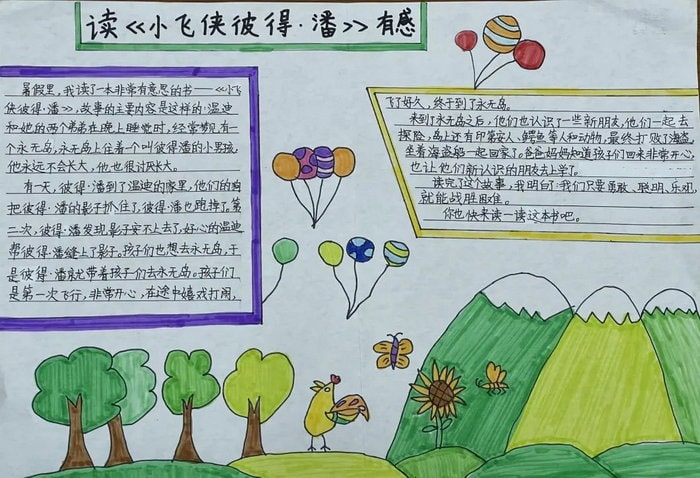 读《小飞侠彼得·潘》有感
暑假里,我读了一本非常有意思的书——《小飞
侠彼得·潘》,故事的主要内容是这样的:温迪
和她的两个弟弟在晚上睡觉时,经常梦见有一
个永无岛,永无岛上住着一个叫彼得潘的小男孩,
他永远不会长大,他也很讨厌长大。
有一天,彼得·潘到了温迪的家里,他们的狗
把彼得·潘的影子扑住了,彼得潘也跑掉了。第
二次,彼得·潘发现影子安不上去了,好心的温迪
帮彼得·潘缝上了影子。孩子们也想去永无岛,于
是彼得·潘就带着孩子们去永无岛。孩子们
是第一次飞行,非常开心,在途中嬉戏打闹,
飞了好久,终于到了永无岛。
来到永无岛之后,他们也认识了一些新朋友,他们一起去
探险,岛上还有印第安人、鳄鱼等人和动物,最终打败了海盗,
坐着海盗船一起回家了。爸爸妈妈知道孩子们回来非常开心
也让他们新认识的朋友去上学了。
读完了这个故事,我明白了:我们只要勇敢、聪明、乐观,
就能战胜困难。
你也快来读一读这本书吧。